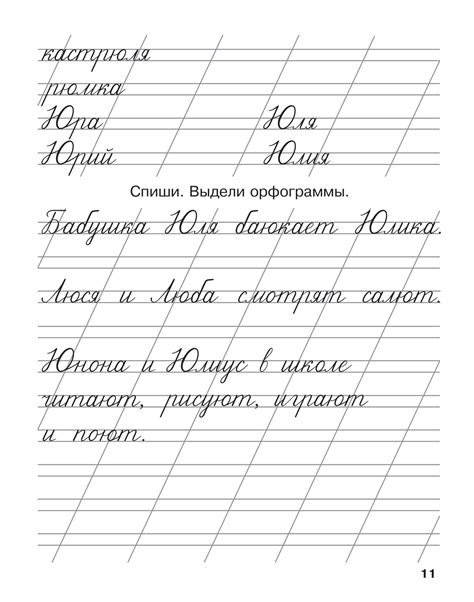 кастрюля
рюмка
Юра Юля
Юрий Юлия
Спиши. Выдели орфограммы.
Бабушка Юля баюкает Юлика.
Люся и Люба смотрят салют.
Юнона и Юлиус в школе
читают, рисуют, играют
и поют.
11